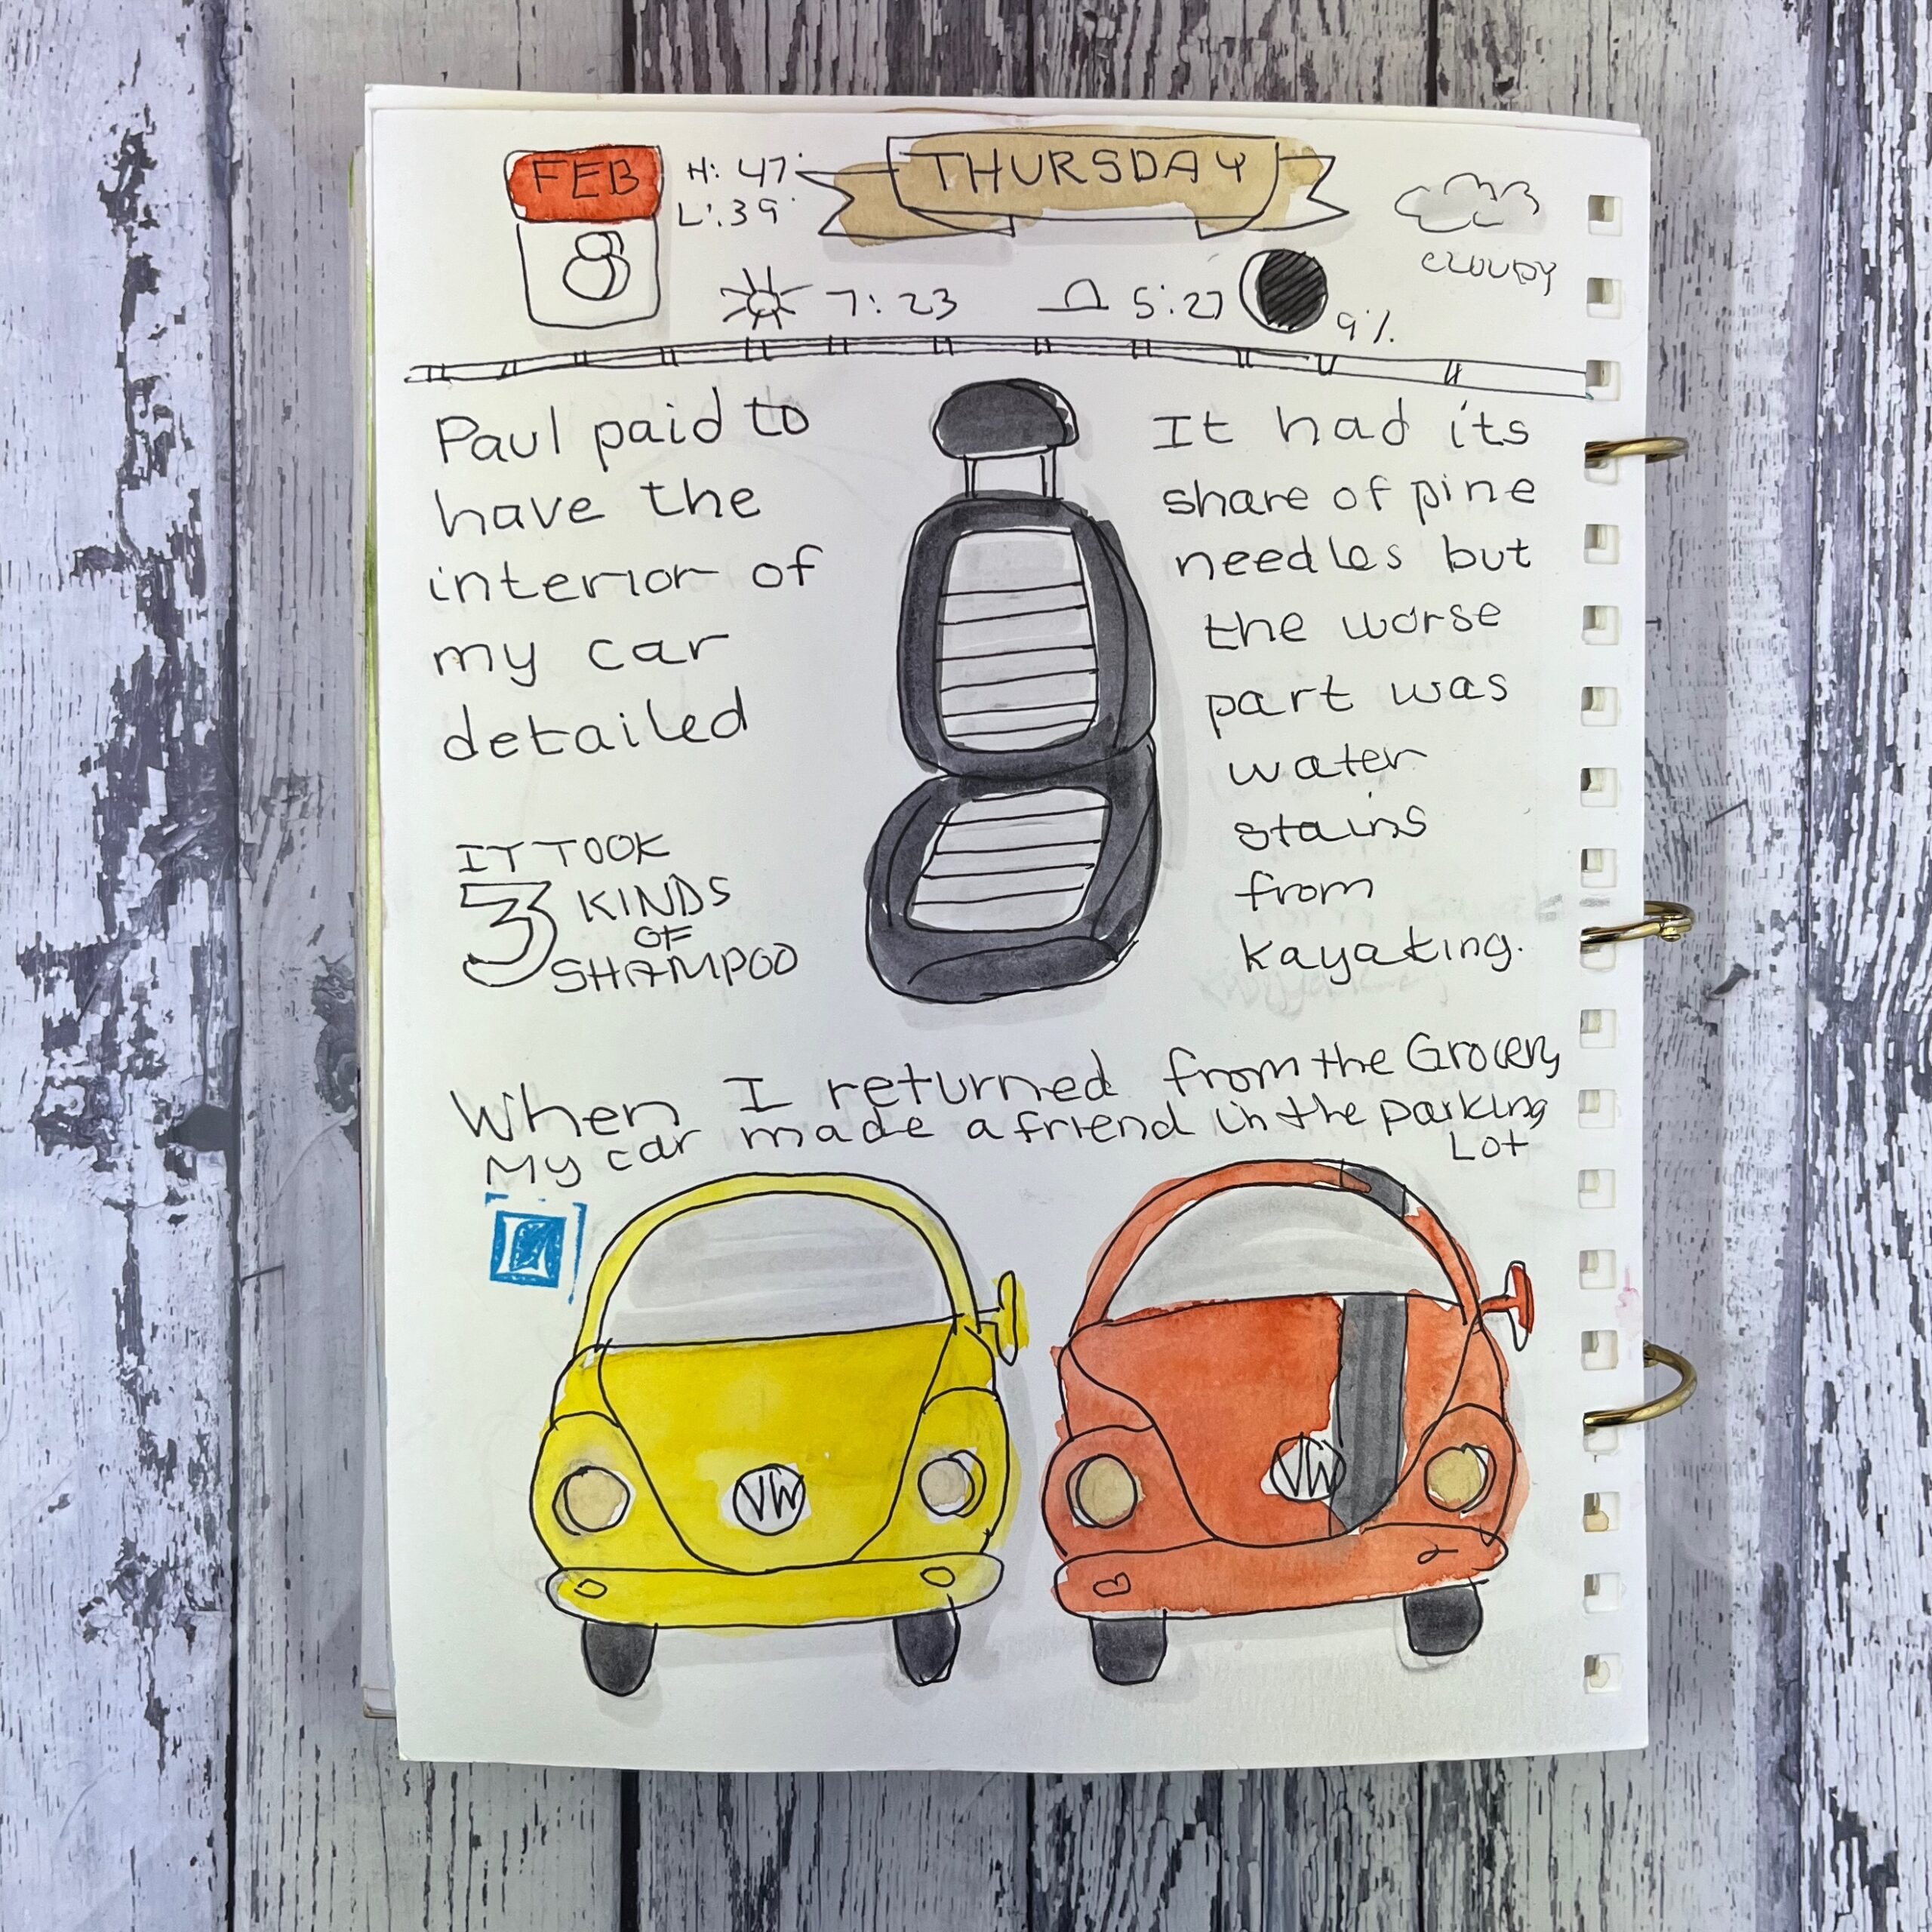 FEB
8
H: 47°
L: 39°
THURSDAY
CLOUDY
7:23
5:27
9%
Paul paid to
have the
interior of
my car
detailed
IT TOOK
3 KINDS
OF
SHAMPOO
It had its
share of pine
needles but
the worse
part was
water
stains
from
kayaking.
When I returned from the Grocery
My car made a friend in the parking
Lot
VW
VW